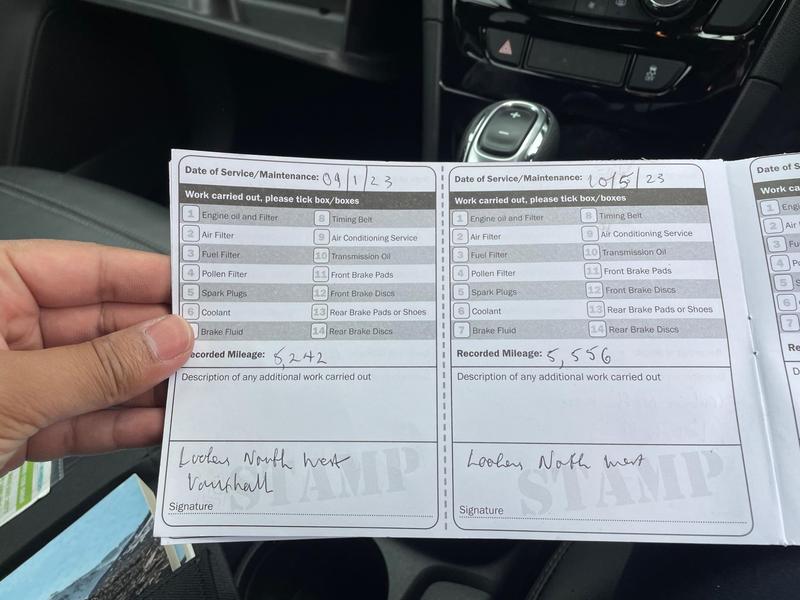 Date of Service/Maintenance: 09/1/23
Work carried out, please tick box/boxes
1 Engine oil and Filter 8 Timing Belt
2 Air Filter 9 Air Conditioning Service
3 Fuel Filter 10 Transmission Oil
4 Pollen Filter 11 Front Brake Pads
5 Spark Plugs 12 Front Brake Discs
6 Coolant 13 Rear Brake Pads or Shoes
Brake Fluid 14 Rear Brake Discs
ecorded Mileage: 5,242
Description of any additional work carried out
Lookers North West
Vauxhall
STAMP
Signature
Date of Service/Maintenance: 10/5/23
Work carried out, please tick box/boxes
1 Engine oil and Filter 8 Timing Belt
2 Air Filter 9 Air Conditioning Service
3 Fuel Filter 10 Transmission Oil
4 Pollen Filter 11 Front Brake Pads
5 Spark Plugs 12 Front Brake Discs
6 Coolant 13 Rear Brake Pads or Shoes
7 Brake Fluid 14 Rear Brake Discs
Recorded Mileage: 5,556
Description of any additional work carried out
Lookers North West
STAMP
Signature
Date of S
Work ca
1 Engi
2 Air
3 Fu
4 Po
5
6
7
Re
D